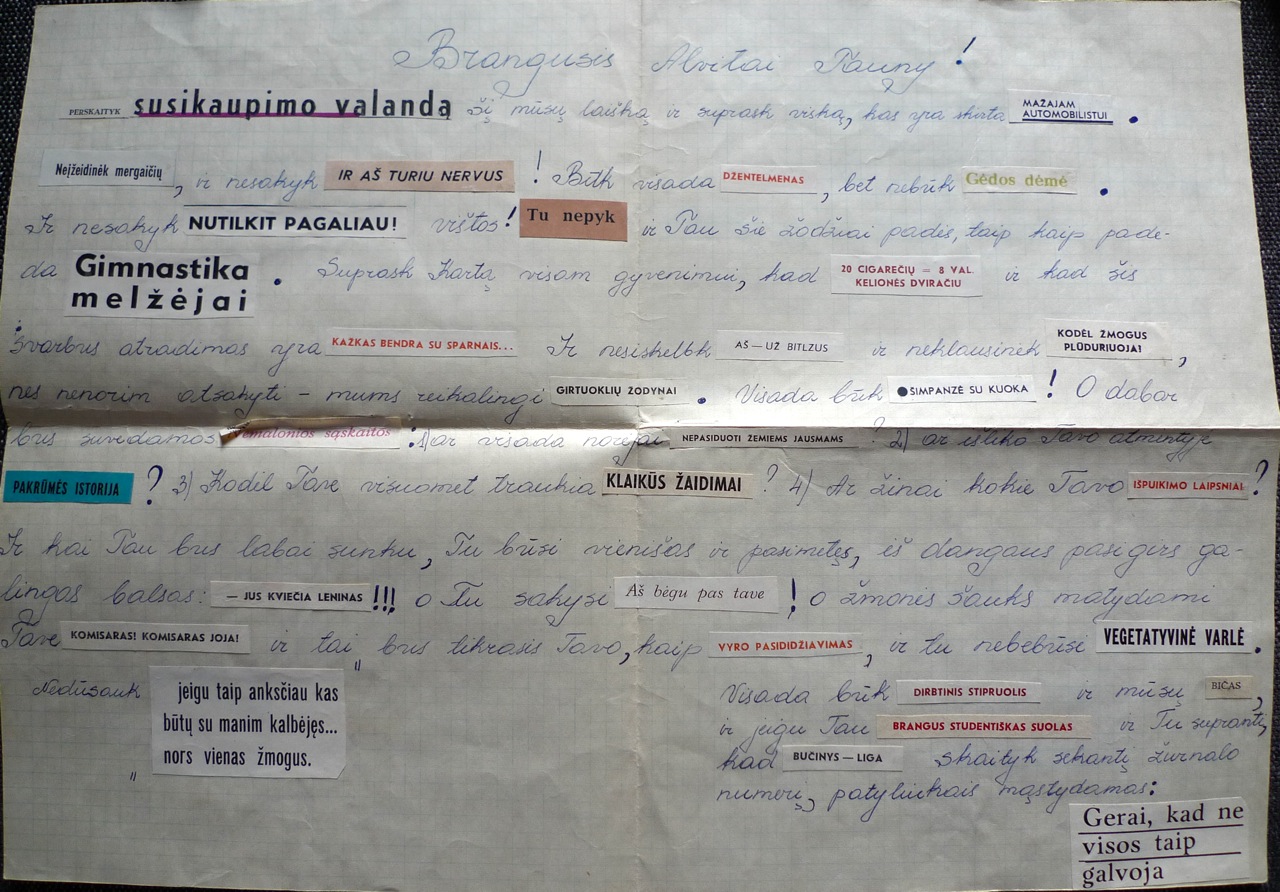 Brangusis Alvitai Tauny!
PERSKAITYK susikaupimo valandą šį mūsų laišką ir suprask viską, kas yra skirta MAŽAJAM AUTOMOBILISTUI.
Neįžeidinėk mergaičių, ir nesakyk IR AŠ TURIU NERVUS! Būk visada DŽENTELMENAS, bet nebūk Gėdos dėmė.
Ir nesakyk NUTILKIT PAGALIAU! vištos! Tu nepyk ir Tau šie žodžiai padės, taip kaip pade-
da Gimnastika melžėjai. Suprask Kartą visam gyvenimui, kad 20 CIGAREČIŲ = 8 VAL. KELIONĖS DVIRAČIU ir kad šis
svarbus atradimas yra KAŽKAS BENDRA SU SPARNAIS... Ir nesiskelbk AŠ — UŽ BITLZUS ir neklausinėk KODĖL ŽMOGUS PLŪDURIUOJA!,
nes nenorim atsakyti – mums reikalingi GIRTUOKLIŲ ŽODYNAI. Visada būk ŠIMPANZĖ SU KUOKA! O dabar
bus suvedamos Nemalonios sąskaitos: 1) ar visada norėjai NEPASIDUOTI ŽEMIEMS JAUSMAMS? 2) ar išliko Tavo atmintyje
PAKRŪMĖS ISTORIJA? 3) Kodėl Tave visuomet traukia KLAIKŪS ŽAIDIMAI? 4) Ar žinai kokie Tavo IŠPUIKIMO LAIPSNIAI?
Ir kai Tau bus labai sunku, Tu būsi vienišas ir pasimetęs, iš dangaus pasigirs ga-
lingas balsas: — JUS KVIEČIA LENINAS!!! o Tu sakysi Aš bėgu pas tave! o žmonės šauks matydami
Tave KOMISARAS! KOMISARAS JOJA! ir tai bus tikrasis Tavo, kaip VYRO PASIDIDŽIAVIMAS, ir tu nebebūsi VEGETATYVINĖ VARLĖ.
Nedūsauk "jeigu taip anksčiau kas
būtų su manim kalbėjęs...
nors vienas žmogus."
Visada būk DIRBTINIS STIPRUOLIS ir mūsų BIČAS,
ir jeigu Tau BRANGUS STUDENTIŠKAS SUOLAS ir Tu supranti,
kad BUČINYS — LIGA skaityk sekantį žurnalo
numerį, patyliukais mąstydamas:
Gerai, kad ne
visos taip
galvoja